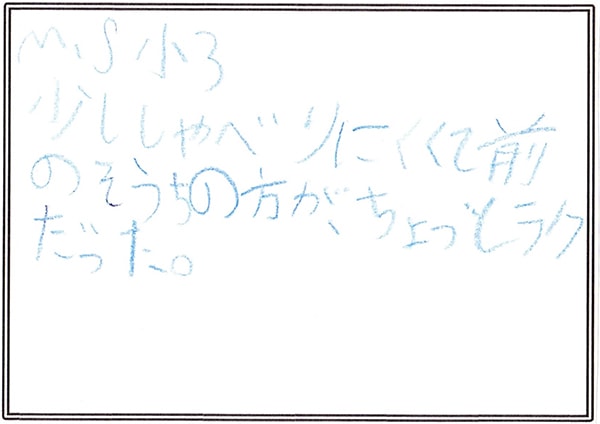 M.S 小3
少ししゃべりにくくて前
のそうちの方が、ちょっとラク
だった。